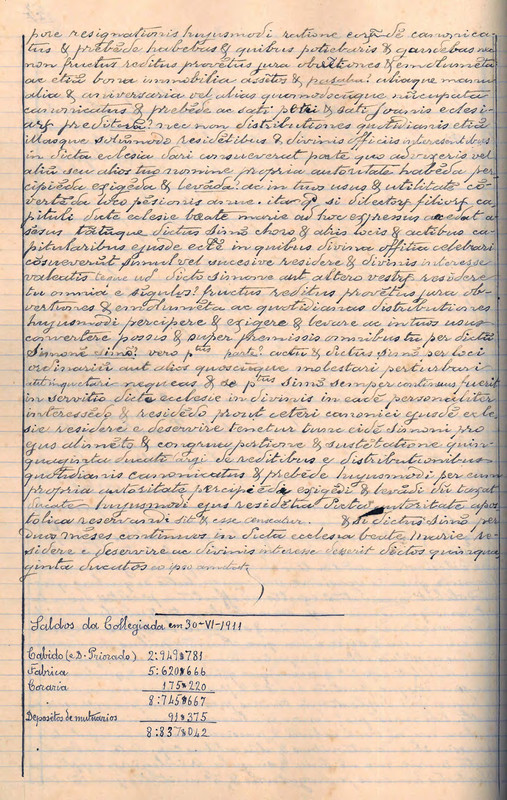 pore resignationis hujusmodi ratione corū dē canonica-
tus & prēbēde habebas & quibus potiebaris & gaudebas nec
non fructus reditus provētus jura obvētiones & emolumēta
ac etiā bona immobilia assitos & pasaba? aliaque manu
alia & aniversaria vel alias quomodocūque nūcupata
canonicatus & prebēde ac sāti petri & sāti Joanis eclesi-
arȝ preditarū? nec non distributiones quotidianis etiā
illasque solūmodo residētibus & divinis officiis intercendibus
in dicta eclesia dari consueverat parte quo advexeris vel
aliū seu alios tuo nomine propria autoritate habēda per-
cipiēda exigēda & levāda: ac in tuos usus & utilitatē cō-
vertēda loco pēsionis anue. ita qȝ si dilectorȝ filiorȝ ca-
pituli dicte eclesie beate marie ad hoc expressus accedat a-
sēsus tātūque dictus Simō choro & aliis locis & actibus ca-
pitularibus ejusdē ecłē in quibus divina offitia celebrari
cōsueverūt simul vel sucesive residere & divinis interesse
valeatis te ac ud dicto simone aut altero vestrȝ residere
tu omnia e sīgulos: fructus reditus provētus jura ob-
vētiones & emolumēta ac quotidianas distributiones
hujusmodi percipere & exigere & levare ac in tuos usus
convertere possis & super premissis omnibus tu per dictū
Simonē simō: vero ptus parte? actu & dictus Simō per loci
ordinariū aut alios quoscūque molestari perturbari
aut inquietari nequeas & se ptus Simō semper continuus fuerit
in servitio dicte ecclesie in divinis in eadē personaliter
interessēdo & residēdo prout ceteri canonici ejusdē ecle-
sie residere e deservire tenētur tunc eidē Simoni pro
ejus alimēto & congrua portione & sustētatione quin-
quaginta ducati auri de reditibus e distributionibus
quotidianis canonicatus & prebēde hujusmodi per eum
propria autoritate percipiēdi exigēdi & levādi dū taxat
durate hujusmodi ejus residētia dicta autoritate apos-
tolica reservandi sit & esse censeatur. & si dictus Simō per
duos mēses continuos in dicta ecclesia beate Marie re-
sidere e deservire ac divinis interesse deserit dictos quinqua-
ginta ducatos eo ipso amittat
Saldos da Collegiada em 30-VI-1911
Cabido (e D. Priorado) 2:949$781
Fabrica 5:620$666
Coraria 175$220
8:745$667
Depositos de mutuarios 91$375
8:837$042